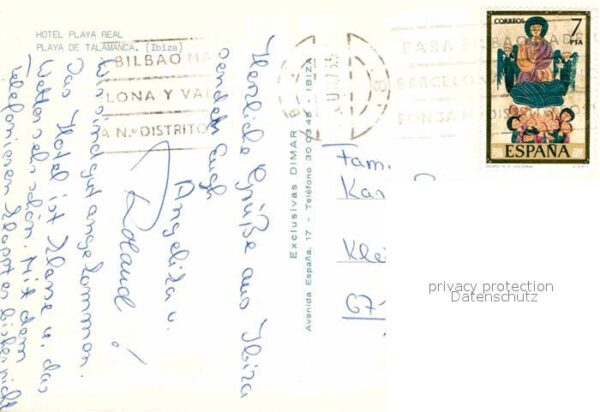 HOTEL PLAYA REAL
PLAYA DE TALAMANCA. (Ibiza)
BILBAO MA
LONA Y VA
A N.º DISTRITO
PARA BILBAO MADRI
BARCELONA
PONGA N.º DISTRITO
CORREOS
7
PTA
ESPAÑA
Herzliche Grüße aus Ibiza
senden Euch
Angelika u.
Roland!
Wir sind gut angekommen.
Das Hotel ist Klasse u. das
Wetter sehr schön. Mit dem
Telefonieren klappt es leider nicht
Exclusivas DIMAR
Avenida España, 17 - Teléfono
IBIZA
Fam.
Kar
Klei
67
privacy protection
Datenschutz